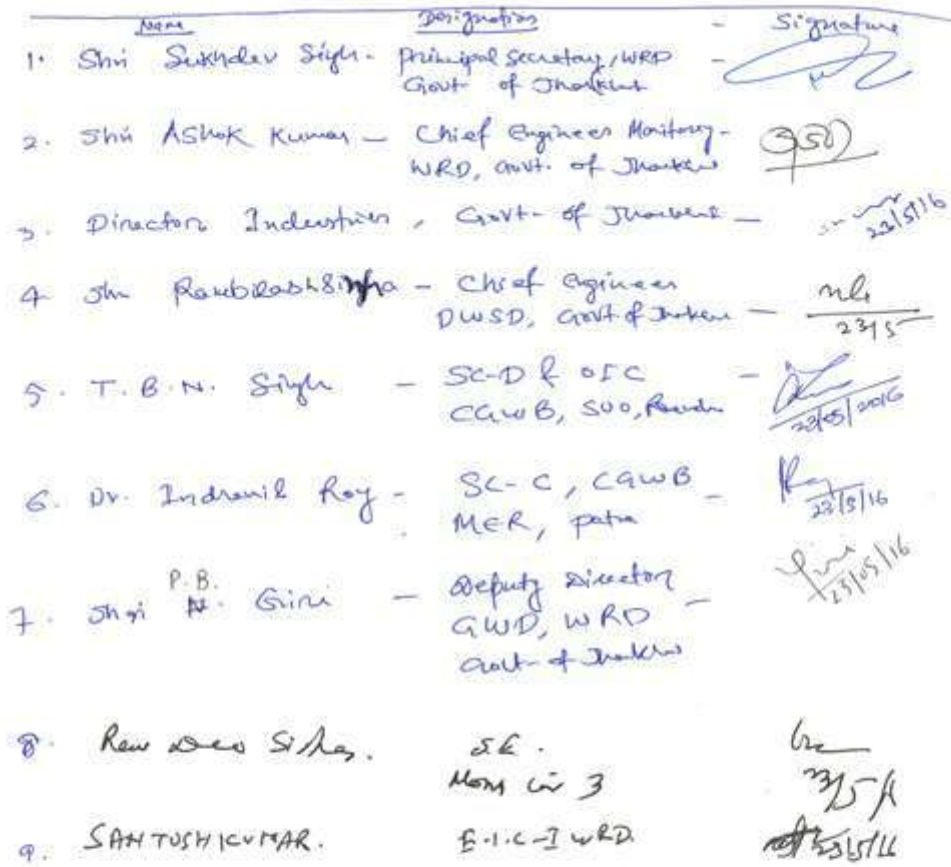 Name Designation - Signature
1. Shri Sukhdev Singh - Principal Secretary, WRD -
Govt. of Jharkhand
2. Shri Ashok Kumar - Chief Engineer Monitoring -
WRD, Govt. of Jharkhand
3. Director Industries, Govt. of Jharkhand -
23/5/16
4 Shri Rambilash Sinha - Chief Engineer
DWSD, Govt of Jharkhand -
23/5
5. T.B.N. Singh - SC-D & OIC -
CGWB, SUO, Ranchi
23/05/2016
6. Dr. Indranil Roy - SC-C, CGWB -
MER, patna
23/5/16
P.B.
7. Shri Giri - Deputy Director -
GWD, WRD
Govt. of Jharkhand
23/05/16
8. Ram Deo Sinha. S.E.
Mon Cir 3
23/5/16
9. SANTOSH KUMAR. E.I.C-I WRD.
23/5/16